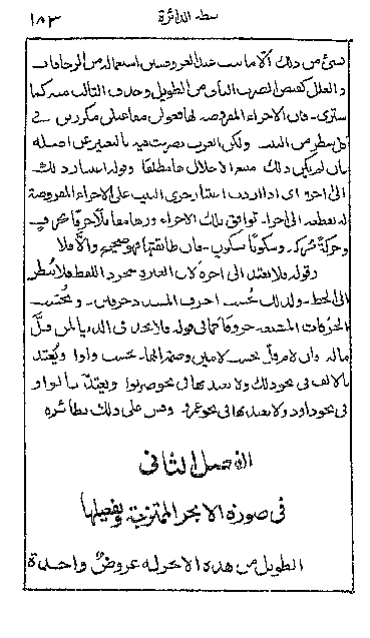 نقطة الدائرة ١٨٣
شئ من ذلك الا ما ثبت عند العروضيين استعماله من الزحافات
والعلل كقبض الضرب الثاني من الطويل وحذف الثالث منه كما
سترى. فان الاجزاء المفروضة لها فعولن مفاعيلن مكررين في
كل شطر من البيت. ولكن العرب تصرفت فيه بالتغيير عن اصله
بان لم يكن ذلك مع الاخلال بها مطلقا وقوله
الى اجزاء اي اذا اردت امتحان بحر في البيت على الاجزاء المفروضة
له تقطعه الى اجزاء توافق تلك الاجزاء وزنها معا بلا حرفا بحرف
وحركة بحركة وسكونا بسكون. فان طابقتها فهو صحيح والا فلا
وقوله فلا يعتد الى اخره لان العبرة بمجرد اللفظ فلا ينظر
الى الخط. ولذلك تحسب احرف المشدد حرفين. وتحسب
الحركات المشبعة حروفا كما في قوله فلا تجد في الدنيا لمن قل
ماله وان لامرؤ تحسب لامين وضمة الهاء تحسب واوا ويعتد
بالالف في نحو ذلك ولا يعتد بها في نحو ضربوا ويعتد بالواو
في نحو داود ولا يعتد بها في نحو عمرو. وقس على ذلك نظائره
الفصل الثاني
في صورة الابحر الممتزجة وتفصيلها
الطويل من هذه الابحر له عروض واحدة